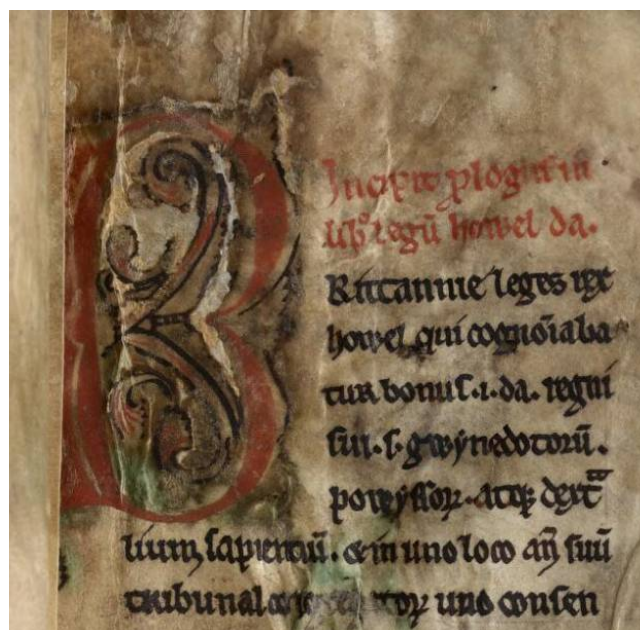 Incipit plogus in
lib° regū howel da.
Rittannie leges rex
howel qui cognoīaba
tur bonus .i. da. regni
sui .s. gwynedotorū.
powyssoꝝ. atqꝫ dextᵃ
lium, sapientiū. & in uno loco an̄ suū
tribunal uno consen